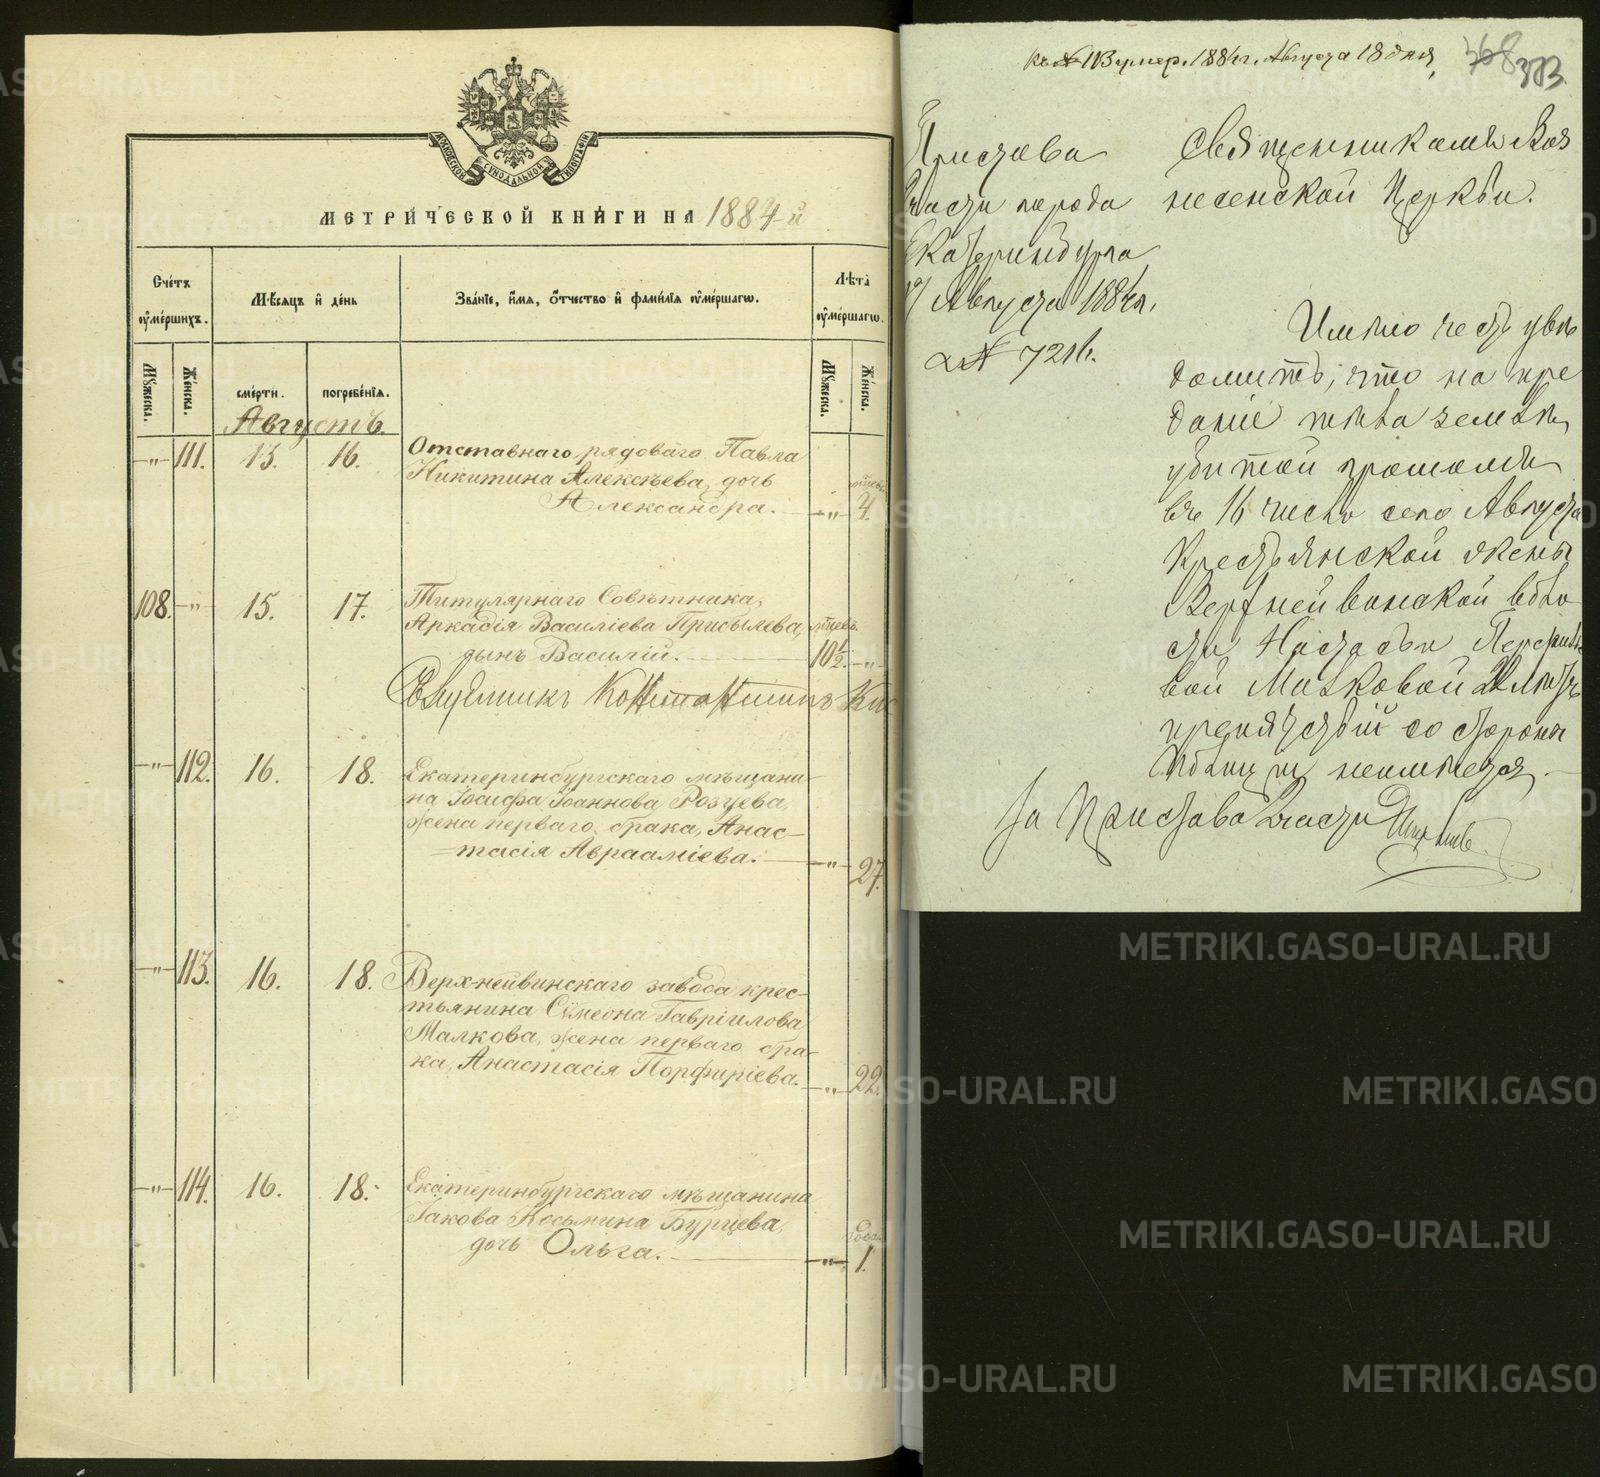 МОСКОВСКОЙ СѴНОДАЛЬНОЙ ТИПОГРАФІИ
МЕТРИ́ЧЕСКОЙ КНИ́ГИ НА 1884-й
Сче́тъ оу҆ме́ршихъ.
Мѣ́сяцъ и҆ де́нь
Зва́нїе, и҆́мя, ѻ҆́тчество и҆ фами́лїя оу҆ме́ршагѡ.
Лѣ́та оу҆ме́ршагѡ.
Мꙋ́жеска.
Же́нска.
сме́рти.
погребе́нїя.
Мꙋ́жеска.
Же́нска.
Августъ.
„ 111. 13. 16. Отставнаго рядоваго Павла
Никитина Алексѣева, дочь
Александра. „ 4.
108. „ 15. 17. Титулярнаго Совѣтника,
Аркадія Василіева Присылева,
сынъ Василій. 10½ „
Константинъ
„ 112. 16. 18. Екатеринбургскаго мѣщани-
на Іосифа Іоаннова Розуева,
жена перваго брака, Анас-
тасія Авраамiева. „ 27.
„ 113. 16. 18. Верхнейвинскаго завода крес-
тьянина Сѵмеона Гавріилова
Малкова, жена перваго бра-
ка, Анастасія Порфиріева. „ 22.
„ 114. 16. 18. Екатеринбургскаго мѣщанина
Іакова Косьмина Бурцева,
дочь Ольга. „ 1.
года
къ № 113 умер. 1884 г. Августа 18 дня,
368
373.
Пристава
части города
Екатеринбурга
17 Августа 1884 г.
№ 7216.
Священникамъ Воз
несенской Церкви.
Имѣю честь увѣ
домить, что на пре
даніе тѣла землѣ,
убитой громомъ
въ 16 число сего Августа
крестьянской жены
Верхнейвинской воло
сти Настасьи Перфилье
вой Малковой 22 лѣтъ
препятствій со стороны
Полиціи неимѣется.
За Пристава 2 части
METRIKI.GASO-URAL.RU